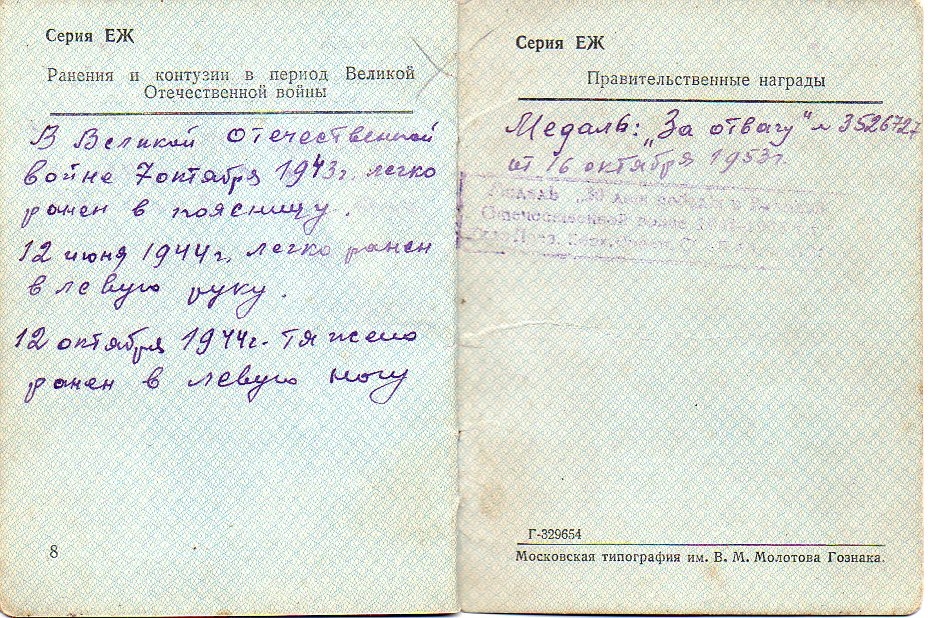 Серия ЕЖ
Ранения и контузии в период Великой
Отечественной войны
В Великой Отечественной
войне 7 октября 1943 г. легко
ранен в поясницу.
12 июня 1944 г. легко ранен
в левую руку.
12 октября 1944 г. тяжело
ранен в левую ногу
8
Серия ЕЖ
Правительственные награды
Медаль: „За отвагу" № 3526727
от 16 октября 1953 г.
Медаль „30 лет победы в Великой
Отечественной войне
Г-329654
Московская типография им. В. М. Молотова Гознака.